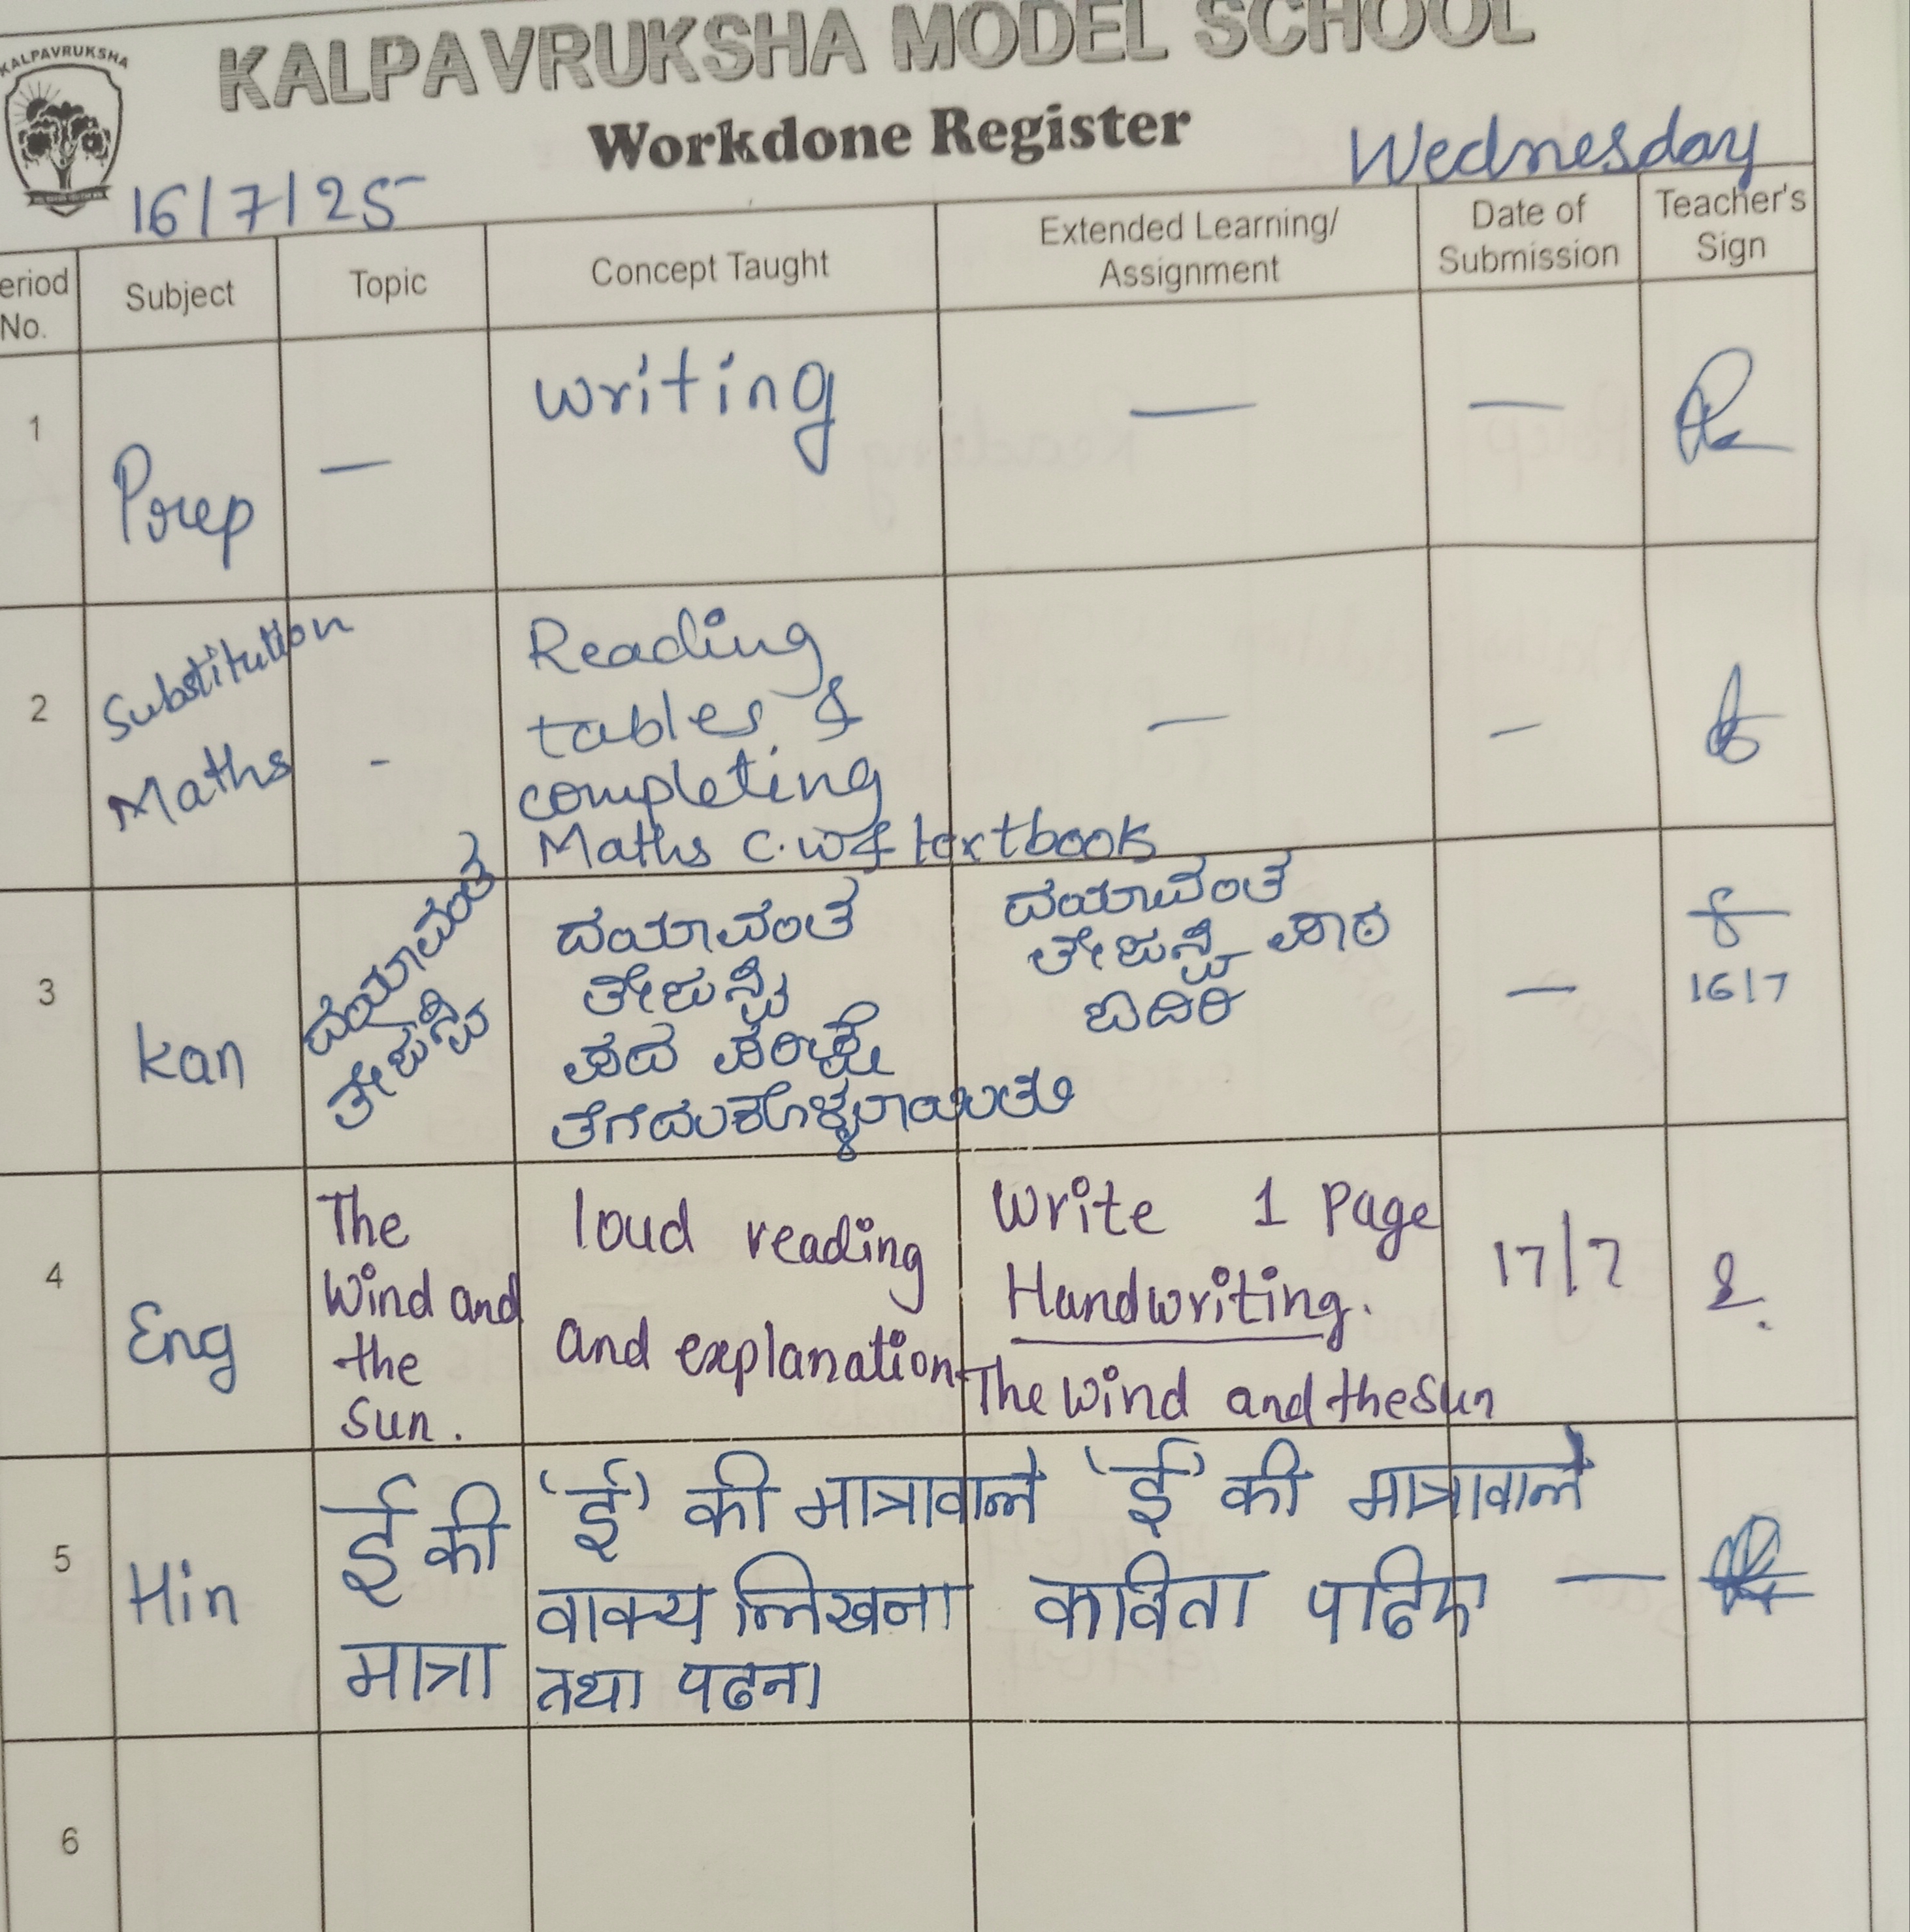 KALPAVRUKSHA
KALPAVRUKSHA MODEL SCHOOL
Workdone Register
16/7/25
Wednesday
eriod No.
Subject
Topic
Concept Taught
Extended Learning/
Assignment
Date of
Submission
Teacher's
Sign
1
Prep
—
writing
—
—
2
Substitution
Maths
-
Reading
tables &
completing
Maths C.W & textbook
—
—
3
Kan
ದಯಾವಂತ
ತೇಜಸ್ವಿ
ದಯಾವಂತ
ತೇಜಸ್ವಿ
ಪದ
ತೆಗೆದುಕೊಳ್ಳಲಾಯಿತು
ದಯಾವಂತ
ತೇಜಸ್ವಿ ಪಾಠ
ಓದಿರಿ
—
16/7
4
Eng
The
Wind and
the
Sun.
loud reading
and explanation
Write 1 Page
Handwriting.
The Wind and the Sun
17/7
5
Hin
ई की
मात्रा
'ई' की मात्रावाले
वाक्य लिखना
तथा पढना
'ई' की मात्रावाले
कविता पढिए
—
6